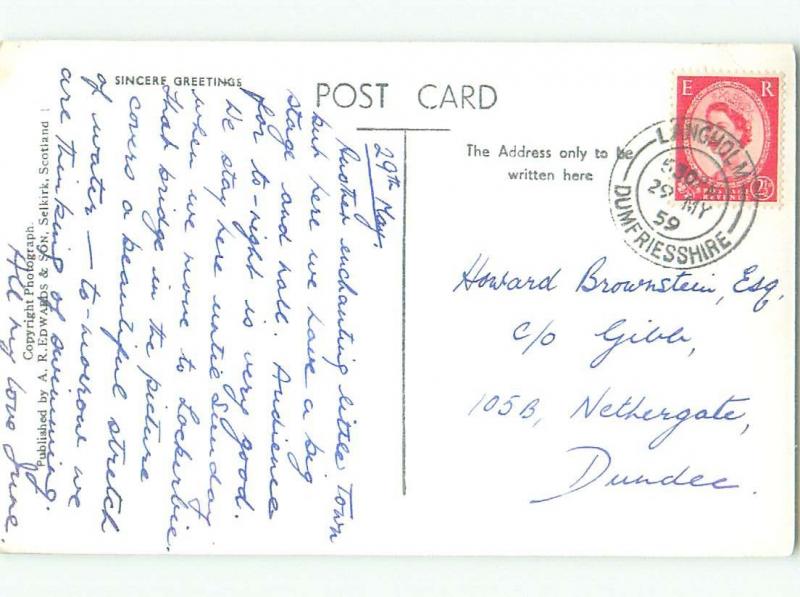 SINCERE GREETINGS
POST CARD
The Address only to be
written here
E R
2½
LANGHOLM
5 30PM
29 MY
59
DUMFRIESSHIRE
29th May.
Another enchanting little town
but here we have a big
stage and hall. Audience
for to-night is very good.
We stay here until Sunday
when we move to Lockerbie.
That bridge in the picture
covers a beautiful stretch
of water — to-morrow we
are thinking of swimming.
All my love June.
Howard Brownstein, Esq,
c/o Gibb,
105B, Nethergate,
Dundee.
Copyright Photograph.
Published by A. R. EDWARDS & SON, Selkirk, Scotland